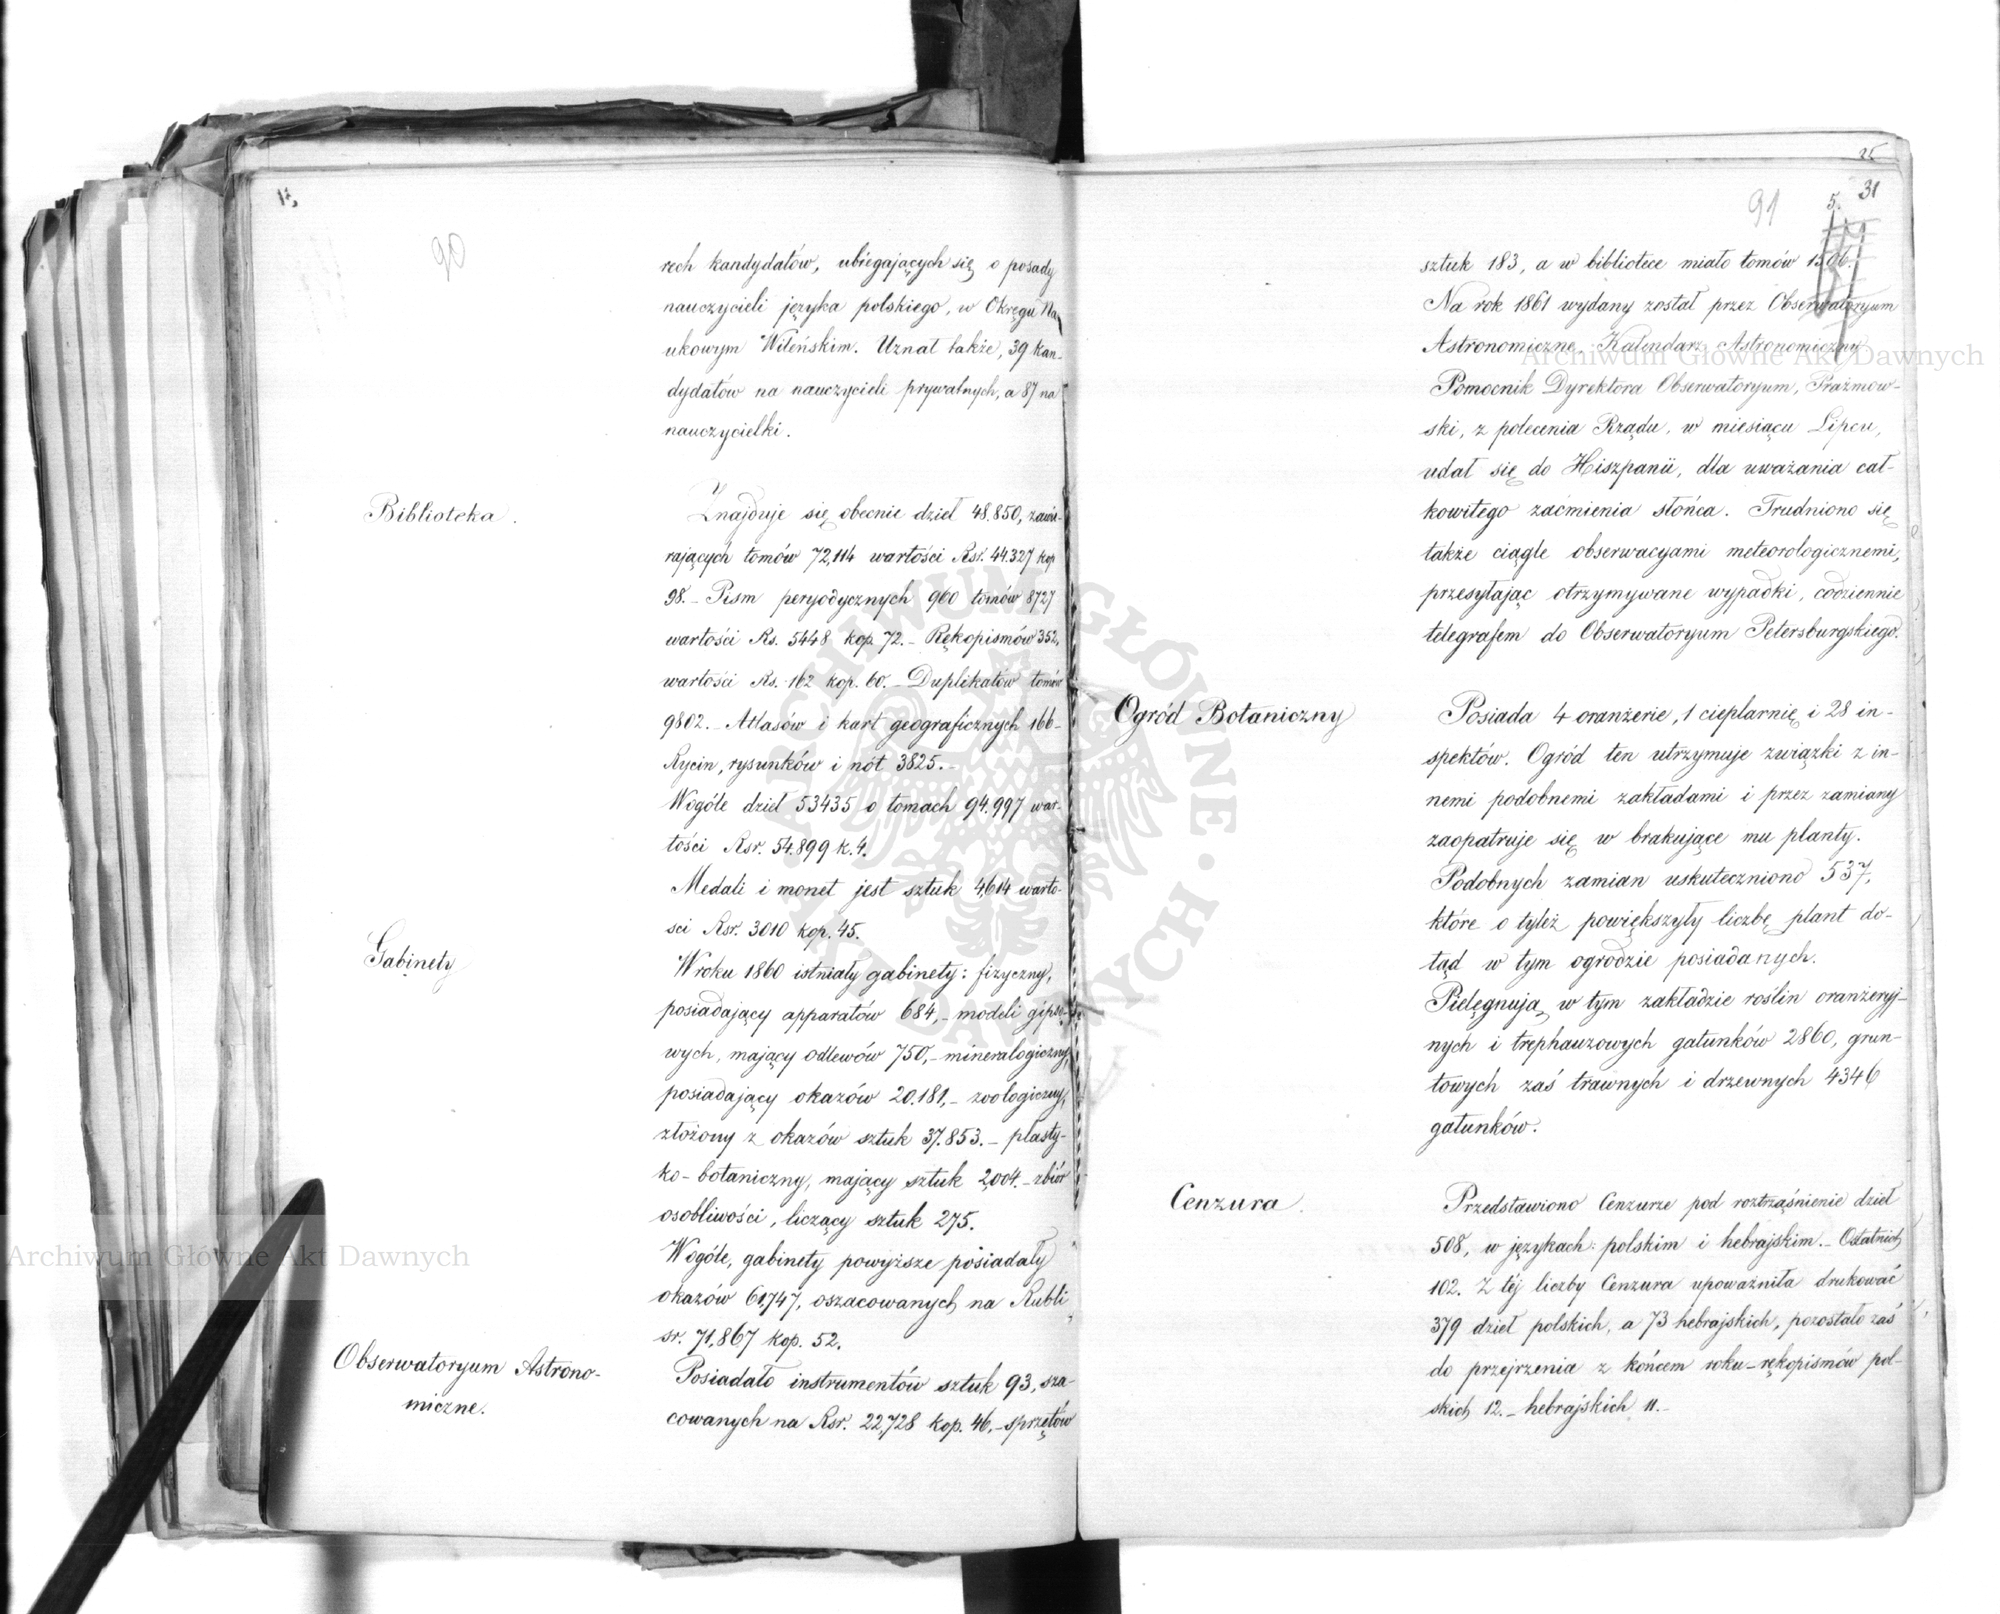 90
rech kandydatów, ubiegających się o posady
nauczycieli języka polskiego, w Okręgu Na
ukowym Wileńskim. Uznał także, 39 kan-
dydatów na nauczycieli prywatnych, a 87 na
nauczycielki.
Biblioteka.
Znajduje się obecnie dzieł 48.850, zawie-
rających tomów 72,114 wartości Rsr. 44.327 kop
98.- Pism peryodycznych 960 tomów 8727
wartości Rs. 5448 kop. 72.- Rękopismów 352,
wartości Rs. 162 kop. 60.- Duplikatów tomów
9802.- Atlasów i kart geograficznych 166-
Rycin, rysunków i nót 3825.-
Wogóle dzieł 53435 o tomach 94.997 war-
tości Rsr. 54.899 k. 4.
Medali i monet jest sztuk 4,614 warto-
sci Rsr. 3010 kop. 45.
Gabinety
W roku 1860 istniały gabinety: fizyczny,
posiadający apparatów 684,- modeli gipso-
wych, mający odlewów 750,- mineralogiczny,
posiadający okazów 20.181,- zoologiczny,
złożony z okazów sztuk 37.853.- plasty-
ko-botaniczny, mający sztuk 2,004.- zbiór
osobliwości, liczący sztuk 275.
Wogóle, gabinety powyższe posiadały
okazów 61,747, oszacowanych na Rubli
sr. 71,867 kop. 52.
Obserwatoryum Astrono-
miczne.
Posiadało instrumentów sztuk 93, sza-
cowanych na Rsr. 22,728 kop. 46,- sprzętów
25
91
5.
31
sztuk 183, a w bibliotece miało tomów 1506.
Na rok 1861 wydany został przez Obserwatoryum
Astronomiczne, Kalendarz Astronomiczny
Pomocnik Dyrektora Obserwatoryum, Prażmow-
ski, z polecenia Rządu, w miesiącu Lipcu,
udał się do Hiszpanii, dla uważania cał-
kowitego zaćmienia słońca. Trudniono się
także ciągle obserwacyami meteorologicznemi,
przesyłając otrzymywane wypadki, codziennie
telegrafem do Obserwatoryum Petersburgskiego.
Ogród Botaniczny
Posiada 4 oranżerie, 1 cieplarnię i 28 in-
spektów. Ogród ten utrzymuje związki z in-
nemi podobnemi zakładami i przez zamiany
zaopatruje się w brakujące mu planty.
Podobnych zamian uskuteczniono 537,
które o tyleż powiększyły liczbę plant do-
tąd w tym ogrodzie posiadanych.
Pielęgnują w tym zakładzie roślin oranżeryj-
nych i trephauzowych gatunków 2860, grun-
towych zaś trawnych i drzewnych 4346
gatunków.
Cenzura.
Przedstawiono Cenzurze pod roztrząśnienie dzieł
508, w językach: polskim i hebrajskim.- Ostatnich
102. Z téj liczby Cenzura upoważniła drukować
379 dzieł polskich, a 73 hebrajskich, pozostało zaś
do przejrzenia z końcem roku-rękopismów pol-
skich 12.- hebrajskich 11.-
Archiwum Główne Akt Dawnych
Archiwum Główne Akt Dawnych
ARCHIWUM GŁÓWNE AKT DAWNYCH